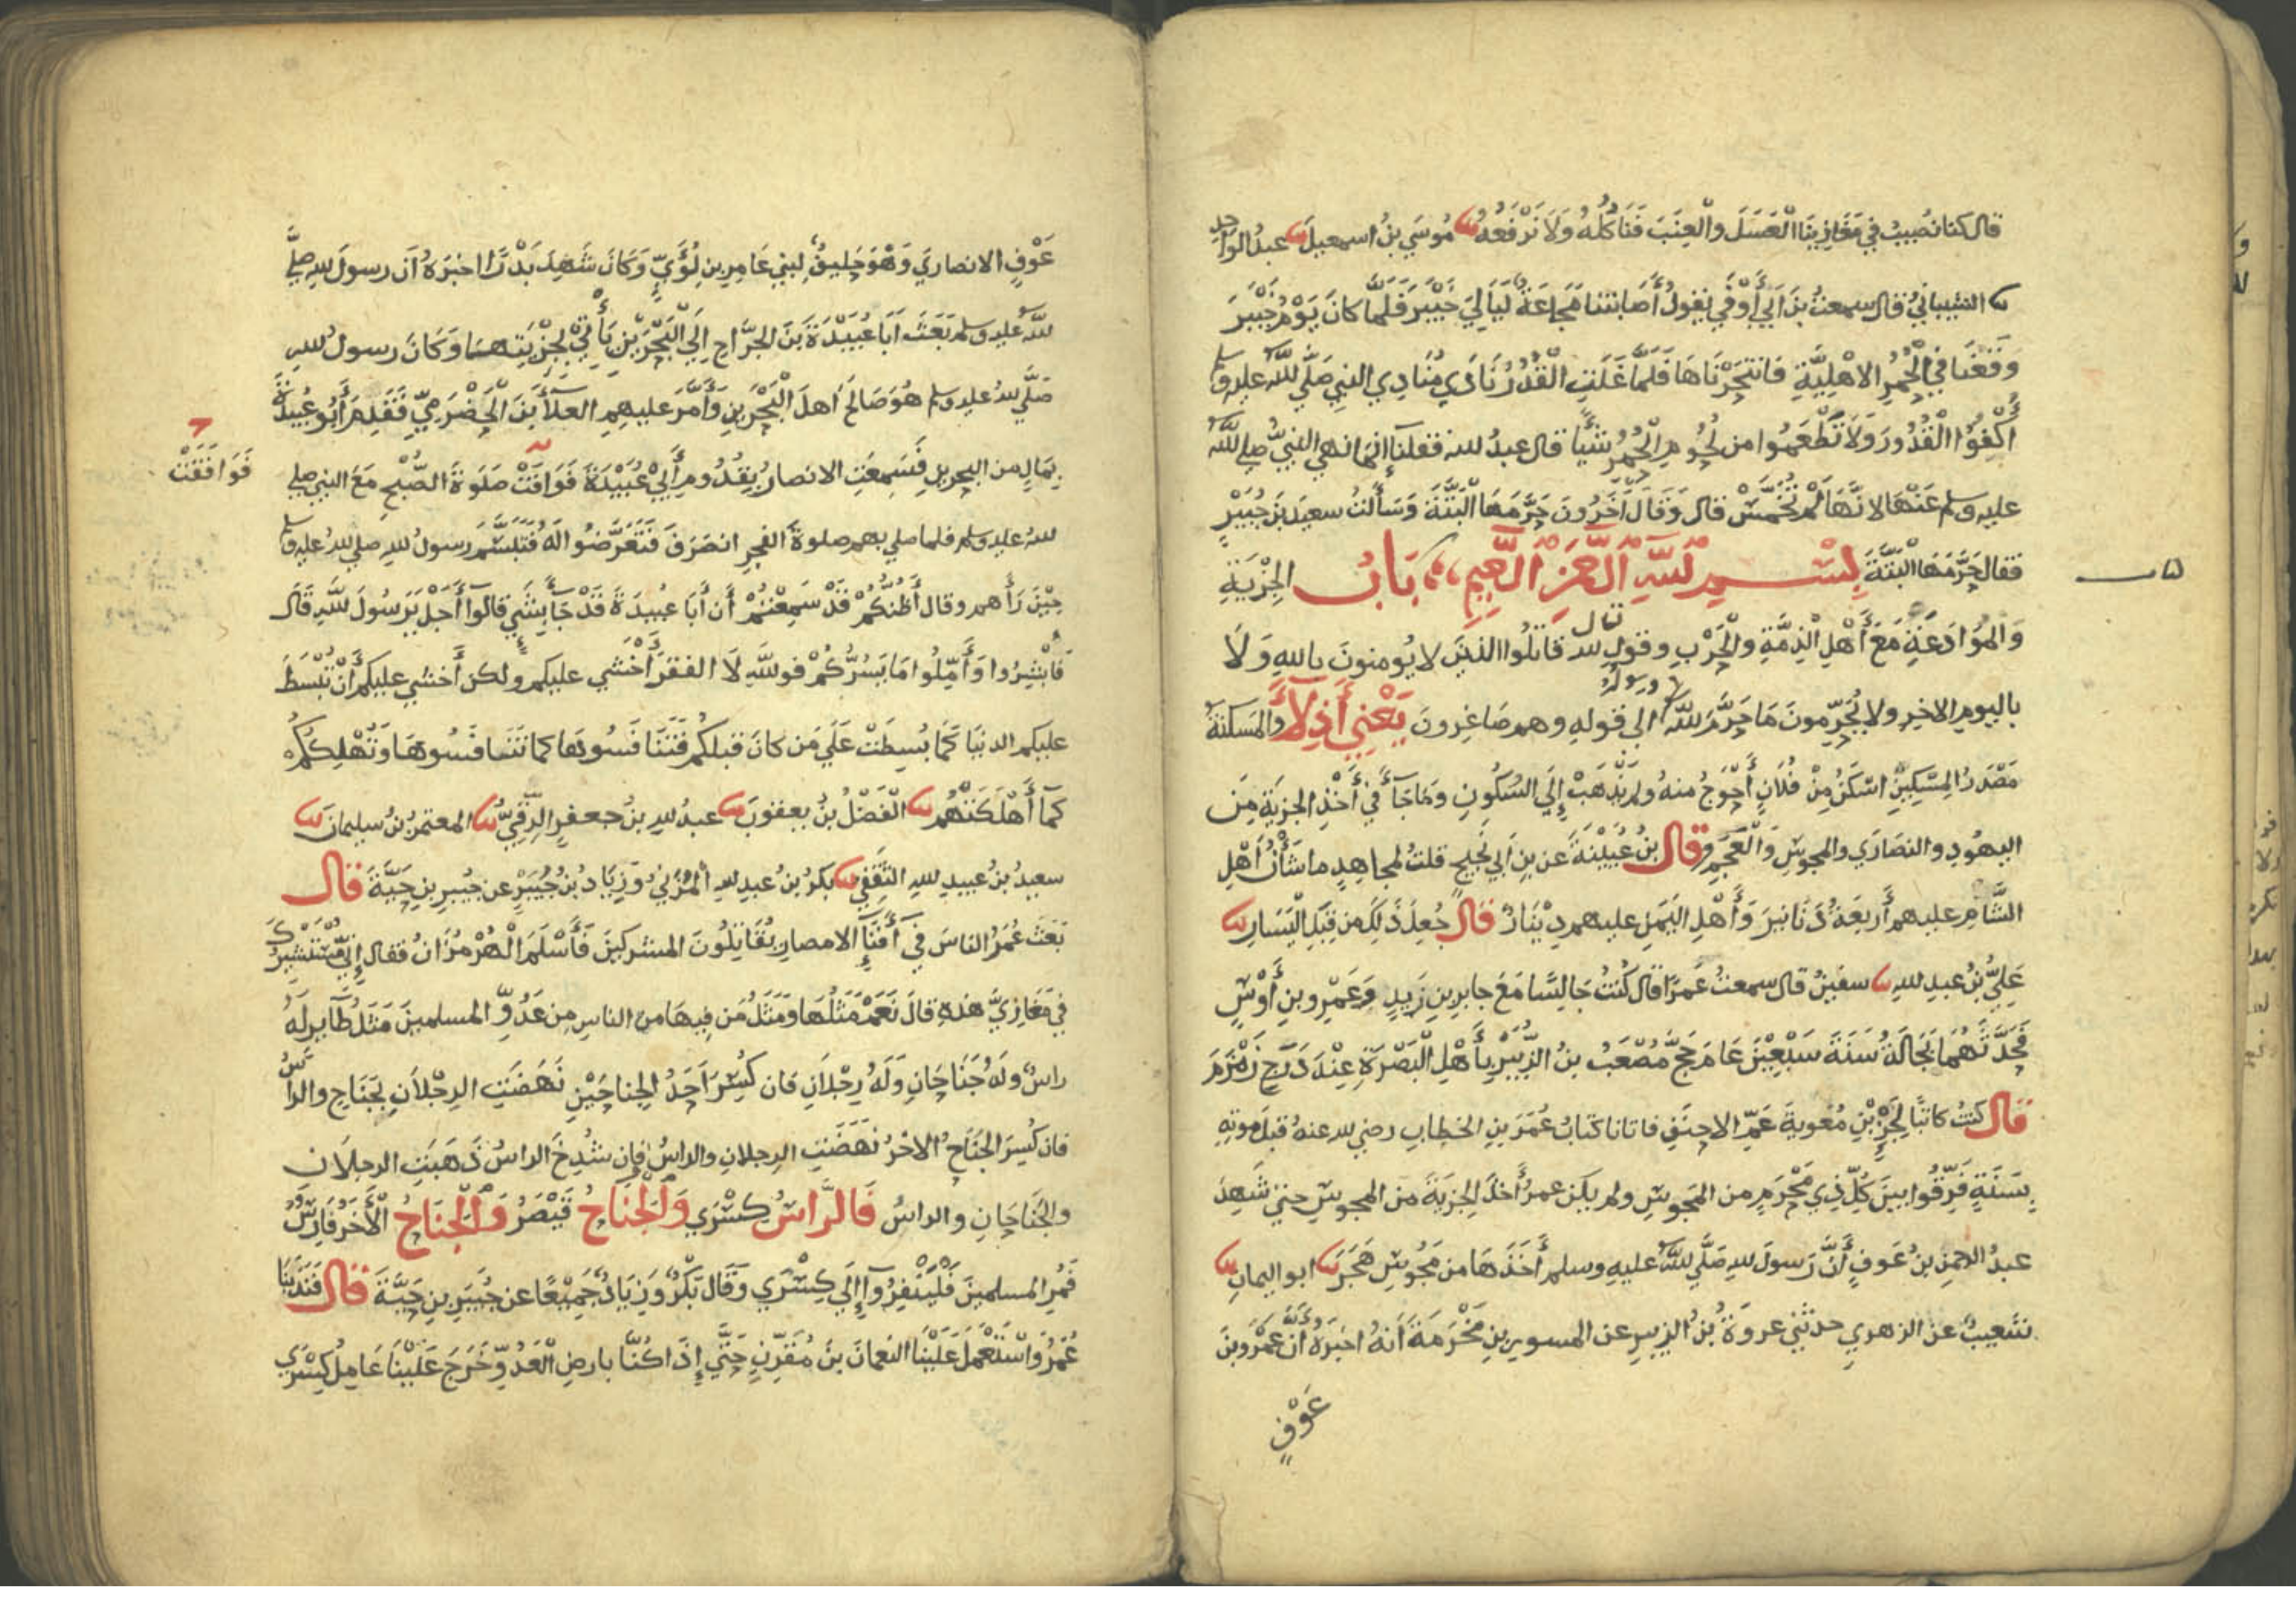 قال كنا نصيب في مغازينا الْعَسَلَ والْعِنَبَ فَنَأكُلُهُ وَلَا نَرْفَعُهُ مُوسَي بنُ اسمعيلَ عبدُ الواحدِ
الشيبانيُّ قال سمعتُ بنَ اَبي أَوْفَي يقولُ أَصَابتنا مَجَاعَةٌ لَيَالِيَ خَيْبَرَ فَلَمَّا كانَ يَوْمُ خَيْبَرَ
وَقَعْنَا في الْحُمُرِ الاهْلِيَّةِ فانتحَرْنَاهَا فَلَمَّا غَلَتِ الْقُدُورُ نَادَي مُنَادِي النبيِ صَلَّي اللهُ عليه وسلم
أَكْفِؤُا الْقُدُورَ وَلَا تَطْعَمُوا من لُحُومِ الْحُمُرِ شَيْأً قال عبدُ الله فقلنا إِنَّمَا نهي النبيُّ صلي اللهُ
عليه وسلم عَنْهَا لانَّهَا لَمْ تُخَمَّسْ قال وَقَالَ آخَرُونَ حَرَّمَهَا الْبَتَّةَ وَسَأَلتُ سعيدَ بنَ جُبَيْرٍ
فقال حَرَّمَهَا الْبَتَّةَ بِسْمِ اللَّهِ الرَّحْمَنِ الرَّحِيمِ بَابُ الجِزْيَةِ
باب
وَالمُوَادَعَةِ مَعَ أَهْلِ الْذِمَّةِ والْحَرْبِ وقولِ الله قال قاتلُوا الذينَ لا يُومنونَ باللهِ وَلَا
باليومِ الاخِرِ ولا يُحَرِّمونَ مَا حَرَّمَ اللهُ ورسوله الي قوله وهم صَاغِرونَ يَعْنِي أَذِلَّاءَ والمَسكنَةُ
مَصْدَرُ المِسْكِينِ اسْكَنُ مِنْ فُلَانٍ أَحْوَجُ منهُ ولم يَذْهَبْ إِلَي السُّكُونِ وَمَا جَآءَ في أَخْذِ الجزيَةِ مِنَ
اليهُودِ والنصَارَي والمجوسِ وَالْعَجَمِ وقال بنُ عُيَيْنَةَ عن بنِ أبي نجيحٍ قلتُ لمجاهِدٍ ما شَأْنُ أَهْلِ
الشَّامِ عليهم أَربَعَةُ دَنَانيرَ وَأَهْلِ اليَمَنِ عليهم دِيْنَارٌ قال جُعِلَ ذَلِكَ من قِبَلِ الْيَسَارِ
عَلِيُّ بنُ عبدِ اللهِ سفينُ قال سمعتُ عَمرًا قال كُنتُ جَالِسًا مَعَ جابرِ بنِ زَيدٍ وَعَمْرِو بنِ أَوْسٍ
فَحَدَّثَهُمَا بَجَالَةُ سَنَةَ سَبْعِيْنَ عَامَ حَجَّ مُصْعَبُ بنُ الزُّبَيْرِ بِأَهْلِ الْبَصْرَةِ عِنْدَ دَرَجِ زَمْزَمَ
قال كنتُ كاتبًا لِجَزْءِ بْنِ مُعٰويةَ عَمِّ الاحنَفِ فاتانا كتابُ عُمَرَ بنِ الخطابِ رضي الله عنهُ قبلَ موتِهِ
بِسَنَةٍ فَرِّقُوا بينَ كُلِّ ذِي مَحْرَمٍ من المَجوسِ ولم يكن عمرُ أَخَذَ الجِزيَةَ من المجوسِ حتي شَهِدَ
عبدُ الرحمنِ بنُ عَوفٍ أَنَّ رَسولَ اللهِ صَلَّي اللهُ عليهِ وسلم أَخَذَهَا من مَجُوسِ هَجَرَ ابو اليمانِ
شعيبٌ عن الزهريِ حدثني عروَةُ بنُ الزبيرِ عن المسورِ بنِ مَخْرَمَةَ أَنهُ اخبَرَهُ أَنَّ عَمْرَو بنَ
عَوْفٍ
عَوْفٍ الانصاريَّ وَهْوَ حَليفٌ لبَنِي عَامِرِ بنِ لُؤَيٍّ وَكَانَ شَهِدَ بَدْرًا اخبَرَهُ اَن رسولَ اللهِ صلي
اللهُ عليه وسلم بَعَثَ اَبَا عُبَيْدَةَ بنَ الجرَّاحِ اِلَي الْبَحْرَيْنِ يَأْتِيْ بِجِزْيَتِهَا وَكَانَ رسولُ اللهِ
صَلَّي اللهُ عليه وسلم هُوَ صَالَحَ اَهلَ الْبَحْرينِ وَأَمَّرَ عليهِمِ العلآءَ بنَ الْحَضْرَمِيِّ فَقَدِمَ أَبُو عُبيدَةَ
بِمَالٍ من البحرينِ فَسَمِعَتِ الانصارُ بِقُدُومِ أَبِيْ عُبَيْدَةَ فَوَافَتْ صَلَوةَ الصُّبْحِ مَعَ النبيِ صلي
فَوَافَقَتْ
اللهُ عليه وسلم فلما صلي بهم صلوةَ الفجرِ انصَرَفَ فَتَعَرَّضُوا لَهُ فَتَبَسَّمَ رسولُ اللهِ صلي اللهُ عليه وسلم
حِيْنَ رَأَهم وقال أَظُنُّكُمْ قَدْ سَمِعْتُمْ أَن أَبَا عُبيدَةَ قَدْ جَآءَ بشَيءٍ قالوآ أَجَلْ يَرَسُولَ اللَّهِ قَال
فَأَبْشِرُوا وَأَمِّلُوا مَا يَسُرُّكُمْ فواللهِ لَا الفقرَ أَخْشَي عليكم ولكن أَخشي عليكم أَنْ تُبْسَطَ
عليكم الدنيَا كَمَا بُسِطَتْ عَلَي مَن كانَ قبلَكُم فَتَنَافَسُوهَا كما تَنَافَسُوهَا وَتُهْلِكَكُم
كَمآ أَهْلَكَتْهُم الْفَضلُ بنُ يعقوبَ عبدُ اللهِ بنُ جعفرٍ الرَّقِّيُّ المعتمرُ بنُ سليمانَ
سعيدُ بنُ عبيدِ اللهِ الثقَفِي بكرُ بنُ عبدِ اللهِ الْمُزَنِيُ وَزِيَادُ بنُ جُبَيْرٍ عن جُبيرِ بنِ حَيَّةَ قال
بَعَثَ عُمَرُ الناسَ فِي أَفنَآءِ الامصارِ يُقَاتِلُونَ المشركينَ فَأَسْلَمَ الْهُرْمُزَانُ فقال إِنِّي مُسْتَشِيرُكَ
في مَغَازِيَّ هَذِهِ قالَ نَعَمْ مَثَلُهَا وَمَثَلُ مَن فِيهَا من الناسِ مِن عَدُوِّ المسلمينَ مَثَلُ طَآيرٍ لَهُ
راسٌ وَلَهُ جَنَاحَانِ وَلَهُ رِجْلَانِ فان كُسِرَ اَحَدُ الجناحَيْنِ نَهَضَتِ الرِجْلَانِ بجَنَاحٍ والراسُ
فان كُسِرَ الجَنَاحُ الاخَرُ نَهَضَتِ الرِجلانِ والراسُ فإن شُدِخَ الراسُ ذَهَبَتِ الرجلَان
والجَنَاحَانِ والراسُ فَالرَّاسُ كِسْرَي وَالْجَنَاحُ قَيْصَرُ وَالْجَنَاحُ الْأَخَرُ فَارِسُ
فَمُرِ المسلمينَ فَلْيَنْفِرُوآ إِلَي كِسْرَي وَقَالَ بَكْرٌ وَزِيَادٌ جَمِيْعًا عن جُبَيرِ بنِ حَيَّةَ قال فَنَدَبَنَا
عُمَرُ وَاسْتَعْمَلَ عَلَيْنَا النعمَانَ بنَ مُقَرِّنٍ حَتَّي إِذَا كُنَّا بارضِ الْعَدُوِّ خَرَجَ عَلَيْنَا عَامِلُ كِسْرَي